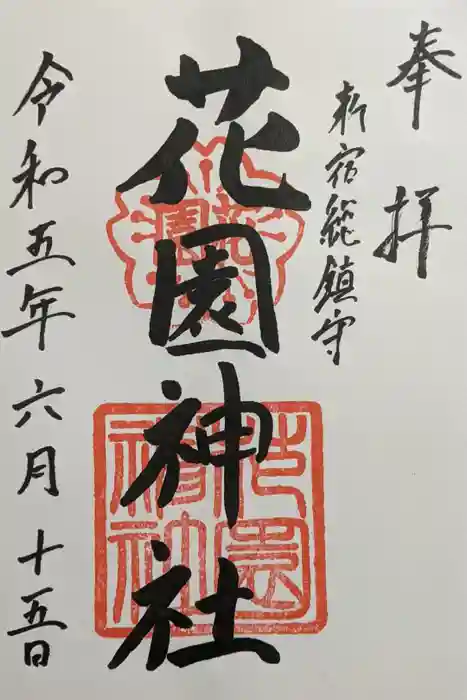 奉拝
新宿総鎮守
花園神社
令和五年六月十五日